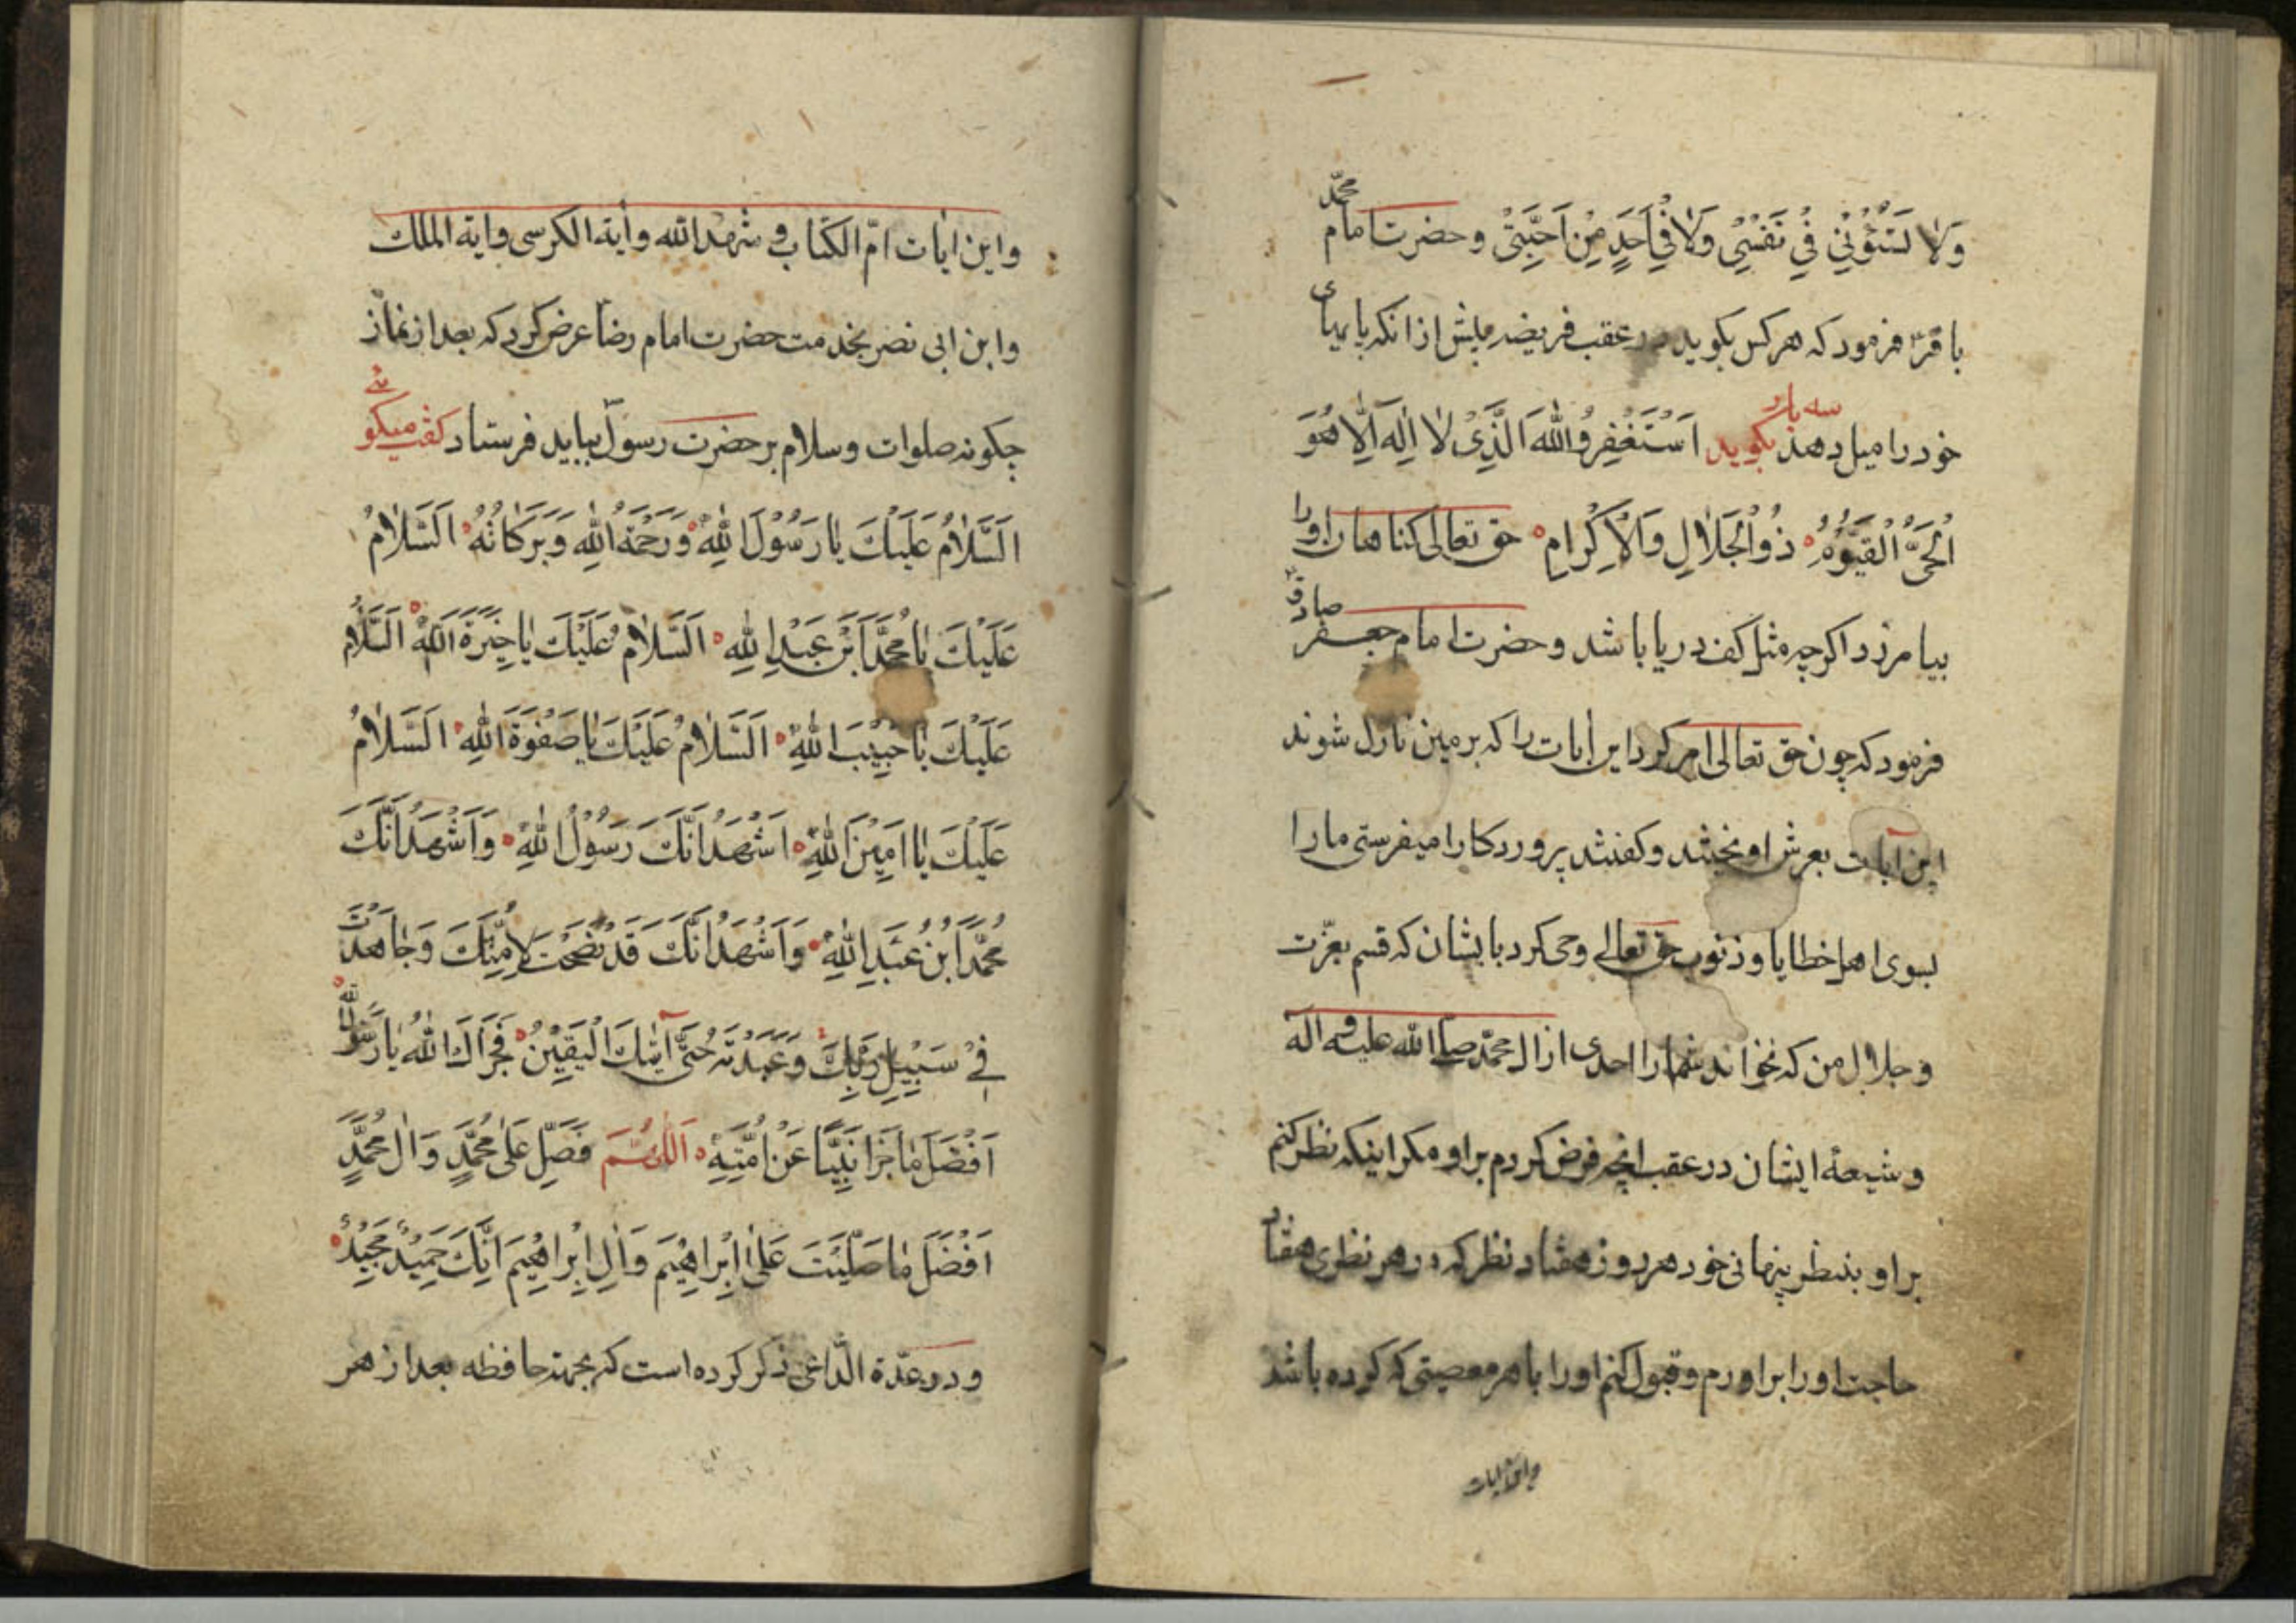 وَلَا تَسُؤْنِي فِي نَفْسِي وَلَا فِي اَحَدٍ مِنْ اَحِبَّتِي وحضرت امام محمّد
باقر فرمود که هر کس بکوید در عقب فریضه پیش از انکه پایهای
خود را میل دهد سه بار بکوید اَسْتَغْفِرُ اللهَ الَّذِیْ لَا اِلٰهَ اِلَّا هُوَ
الْحَیُّ الْقَیُّوْمُ ذُو الْجَلَالِ وَالْاِکْرَامِ حق تعالی کناهان او را
بیامرزد اکرچه مثل کف دریا باشد وحضرت امام جعفر صادق
فرمود که چون حق تعالی امر کرد این ایات را که بر زمین نازل شوند
این آیات بعرش اویختند وکفتند پروردکارا میفرستی ما را
بسوی اهل خطایا وذنوب حق تعالی وحی کرد بایشان که قسم بعزّت
وجلال من که نخواند شما را احدی از ال محمّد صلی الله علیه واله
وشیعهٔ ایشان در عقب انچه فرض کردم بر او مکر اینکه نظر کنم
بر او بنظر پنهانی خود هر روز هفتاد نظر که در هر نظری هفتاد
حاجت او را براورم وقبول کنم او را با هر معصیتی که کرده باشد
واین ایات
واین ایات امّ الکتاب و شهد الله وأیة الکرسی وایة الملک
وابن ابی نصر بخدمت حضرت امام رضا عرض کرد که بعد از نماز
چکونه صلوات وسلام بر حضرت رسول بباید فرستاد کفت میکوئی
اَلسَّلَامُ عَلَیْكَ یَا رَسُوْلَ اللهِ وَرَحْمَةُ اللهِ وَبَرَکَاتُهُ اَلسَّلَامُ
عَلَیْكَ یَا مُحَمَّدَ ابْنَ عَبْدِ اللهِ اَلسَّلَامُ عَلَیْكَ یَا خِیَرَةَ اللهِ اَلسَّلَامُ
عَلَیْكَ یَا حَبِیْبَ اللهِ اَلسَّلَامُ عَلَیْكَ یَا صَفْوَةَ اللهِ اَلسَّلَامُ
عَلَیْكَ یَا اَمِیْنَ اللهِ اَشْهَدُ اَنَّكَ رَسُوْلُ اللهِ وَاَشْهَدُ اَنَّكَ
مُحَمَّدُ ابْنُ عَبْدِ اللهِ وَاَشْهَدُ اَنَّكَ قَدْ نَصَحْتَ لِاُمَّتِكَ وَجَاهَدْتَ
فِیْ سَبِیْلِ رَبِّكَ وَعَبَدْتَهُ حَتّٰی آتٰیكَ الْیَقِیْنُ فَجَزَاكَ اللهُ یَا رَسُوْلَ اللهِ
اَفْضَلَ مَا جَزَا نَبِیًّا عَنْ اُمَّتِهِ اَللّٰهُمَّ فَصَلِّ عَلٰی مُحَمَّدٍ وَالِ مُحَمَّدٍ
اَفْضَلَ مَا صَلَّیْتَ عَلٰی اِبْرَاهِیْمَ وَالِ اِبْرَاهِیْمَ اِنَّكَ حَمِیْدٌ مَجِیْدٌ
ودر عدّة الدّاعی ذکر کرده است که بجهة حافظه بعد از هر